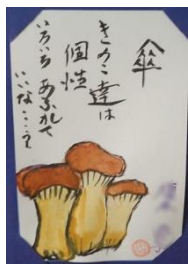 傘
きのこ達は
個性
いろいろ あふれて
いいな…